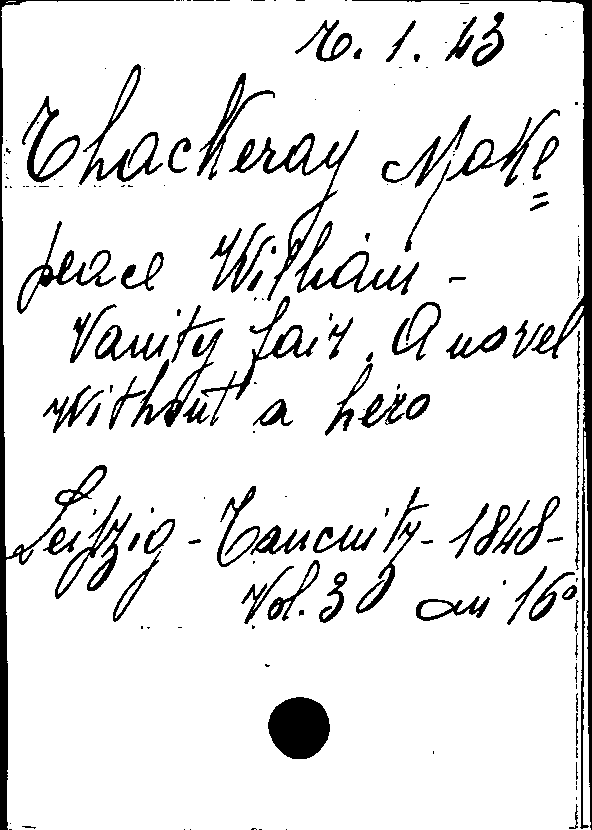 T. 1. 43
Thackeray Make=
peace William -
Vanity fair. A novel
without a hero
Leipzig - Taucnitz - 1848 -
Vol. 3 in 16°